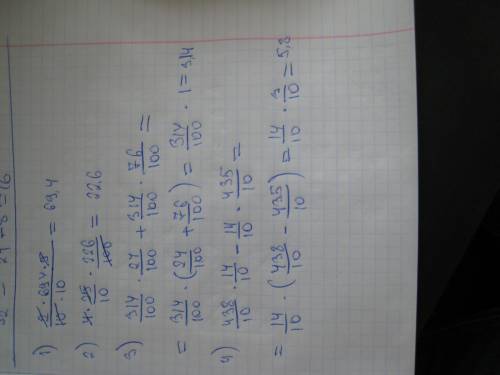 = 16
1) 694 / 10 · 10 = 69,4
2) 4 · 25 / 10 · 226 / 100 = 22,6
3) 314/100 · 24/100 + 314/100 · 76/100 =
= 314/100 · (24/100 + 76/100) = 314/100 · 1 = 3,14
4) 438/10 · 14/10 - 14/10 · 435/10 =
= 14/10 · (438/10 - 435/10) = 14/10 · 3/10 = 5,8